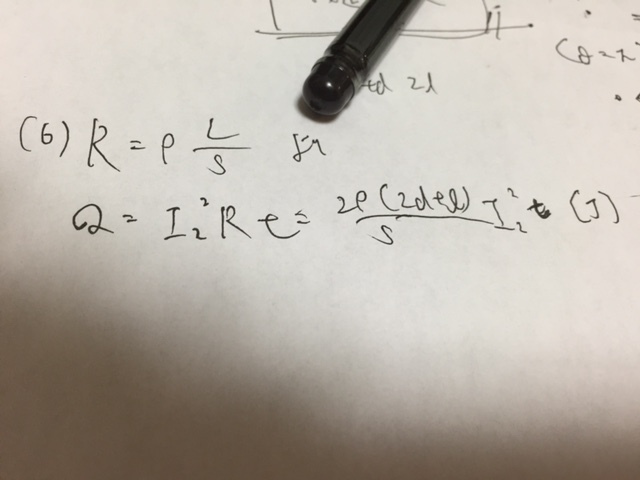 2l
(6) R = ρ L/S より
Q = I₂² R t = 2ρ(2d+l)/S I₂² t (J)